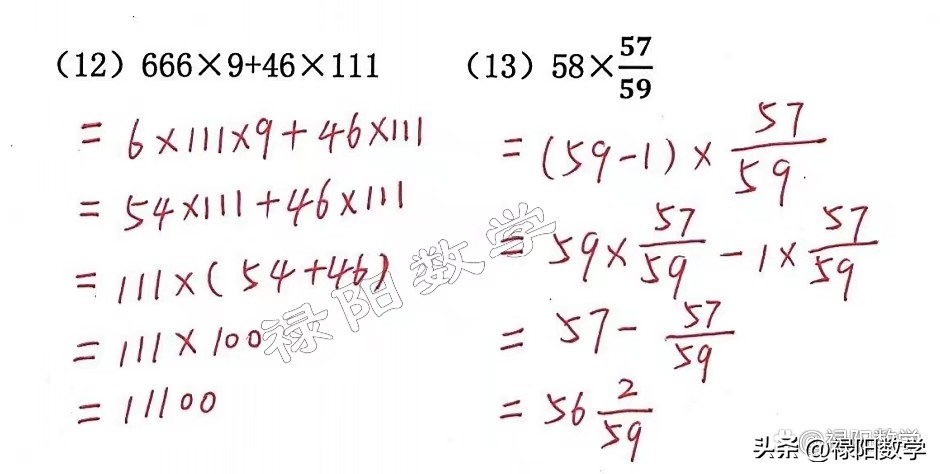 (12) 666×9+46×111
= 6×111×9+46×111
= 54×111+46×111
= 111×(54+46)
= 111×100
= 11100
(13) 58×57/59
= (59-1)×57/59
= 59×57/59-1×57/59
= 57-57/59
= 56 2/59
禄阳数学
@禄阳数学
头条 @禄阳数学